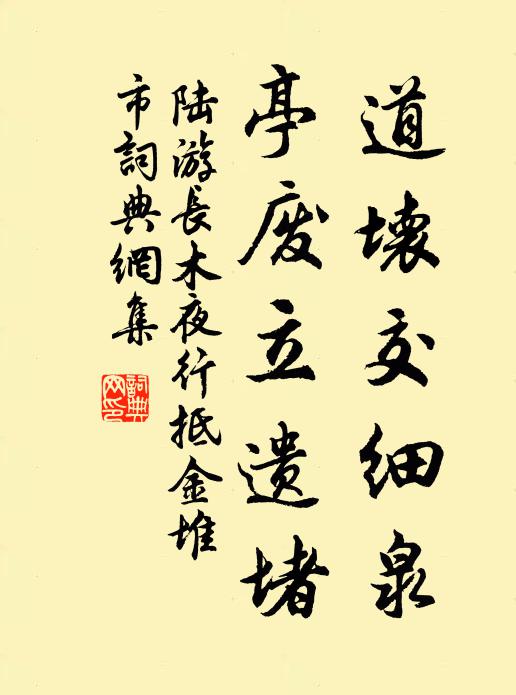 道壞交細泉
亭废立遗堵
陆游長木夜行抵金堆
市詞典網集
詞典
网印